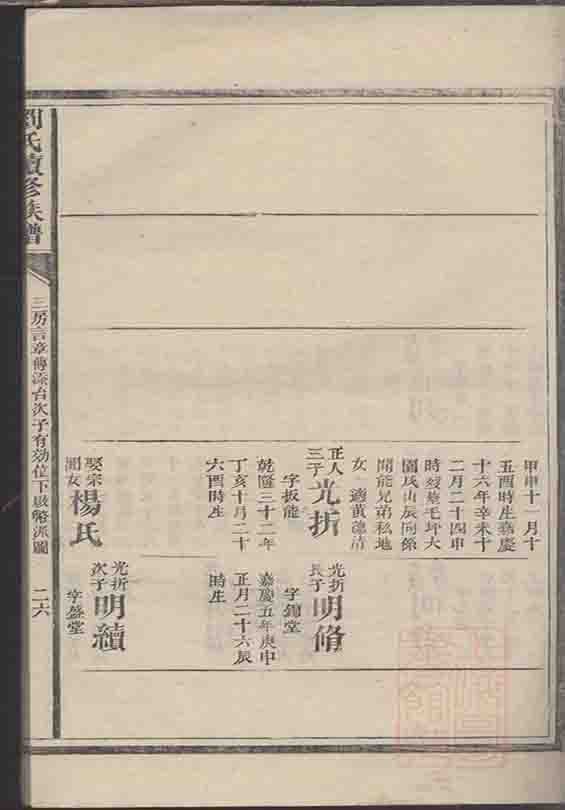 甲申十一月十
丑酉時生嘉慶
十六年辛未十
二月二十四申
時歿塟毛坪大
園戌山辰向係
開能兄弟私地
女 適黃德清
正人三子光折
字扳能
乾隆三十二年
丁亥十月二十
六酉時生
娶宗開女楊氏
光折長子明脩
字錦堂
嘉慶五年庚申
正月二十六辰
時生
光折次子明續
字盛堂
劉氏續修族譜
三房言章傳添台次子有効位下啟幣派圖
二六